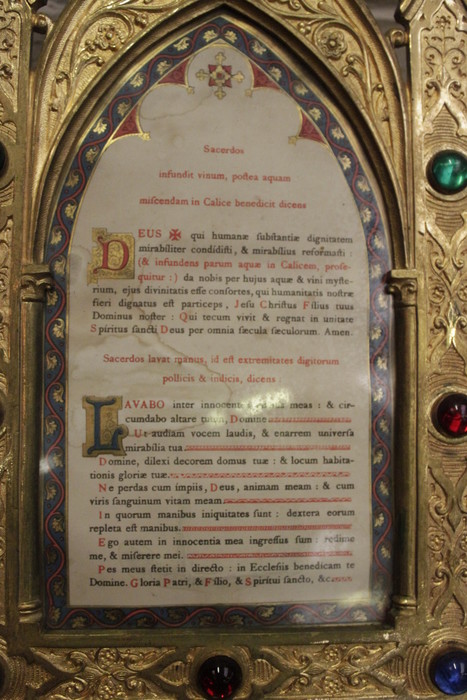 Sacerdos
infundit vinum, poſtea aquam
miſcendam in Calice benedicit dicens
DEUS ✠ qui humanæ ſubſtantiæ dignitatem
mirabiliter condidiſti, & mirabilius reformaſti :
(& infundens parum aquæ in Calicem, proſe-
quitur :) da nobis per hujus aquæ & vini myſte-
rium, ejus divinitatis eſſe conſortes, qui humanitatis noſtræ
fieri dignatus eſt particeps, Jeſu Chriſtus Filius tuus
Dominus noſter : Qui tecum vivit & regnat in unitate
Spiritus ſancti Deus per omnia ſæcula ſæculorum. Amen.
Sacerdos lavat manus, id eſt extremitates digitorum
pollicis & indicis, dicens :
LAVABO inter innocentes meas : & cir-
cumdabo altare tuum, Domine
Ut audiam vocem laudis, & enarrem univerſa
mirabilia tua
Domine, dilexi decorem domus tuæ : & locum habita-
tionis gloriæ tuæ
Ne perdas cum impiis, Deus, animam meam : & cum
viris ſanguinum vitam meam
In quorum manibus iniquitates ſunt : dextera eorum
repleta eſt manibus
Ego autem in innocentia mea ingreſſus ſum : redime
me, & miſerere mei.
Pes meus ſtetit in directo : in Eccleſiis benedicam te
Domine. Gloria Patri, & Filio, & Spiritui ſancto, &c.